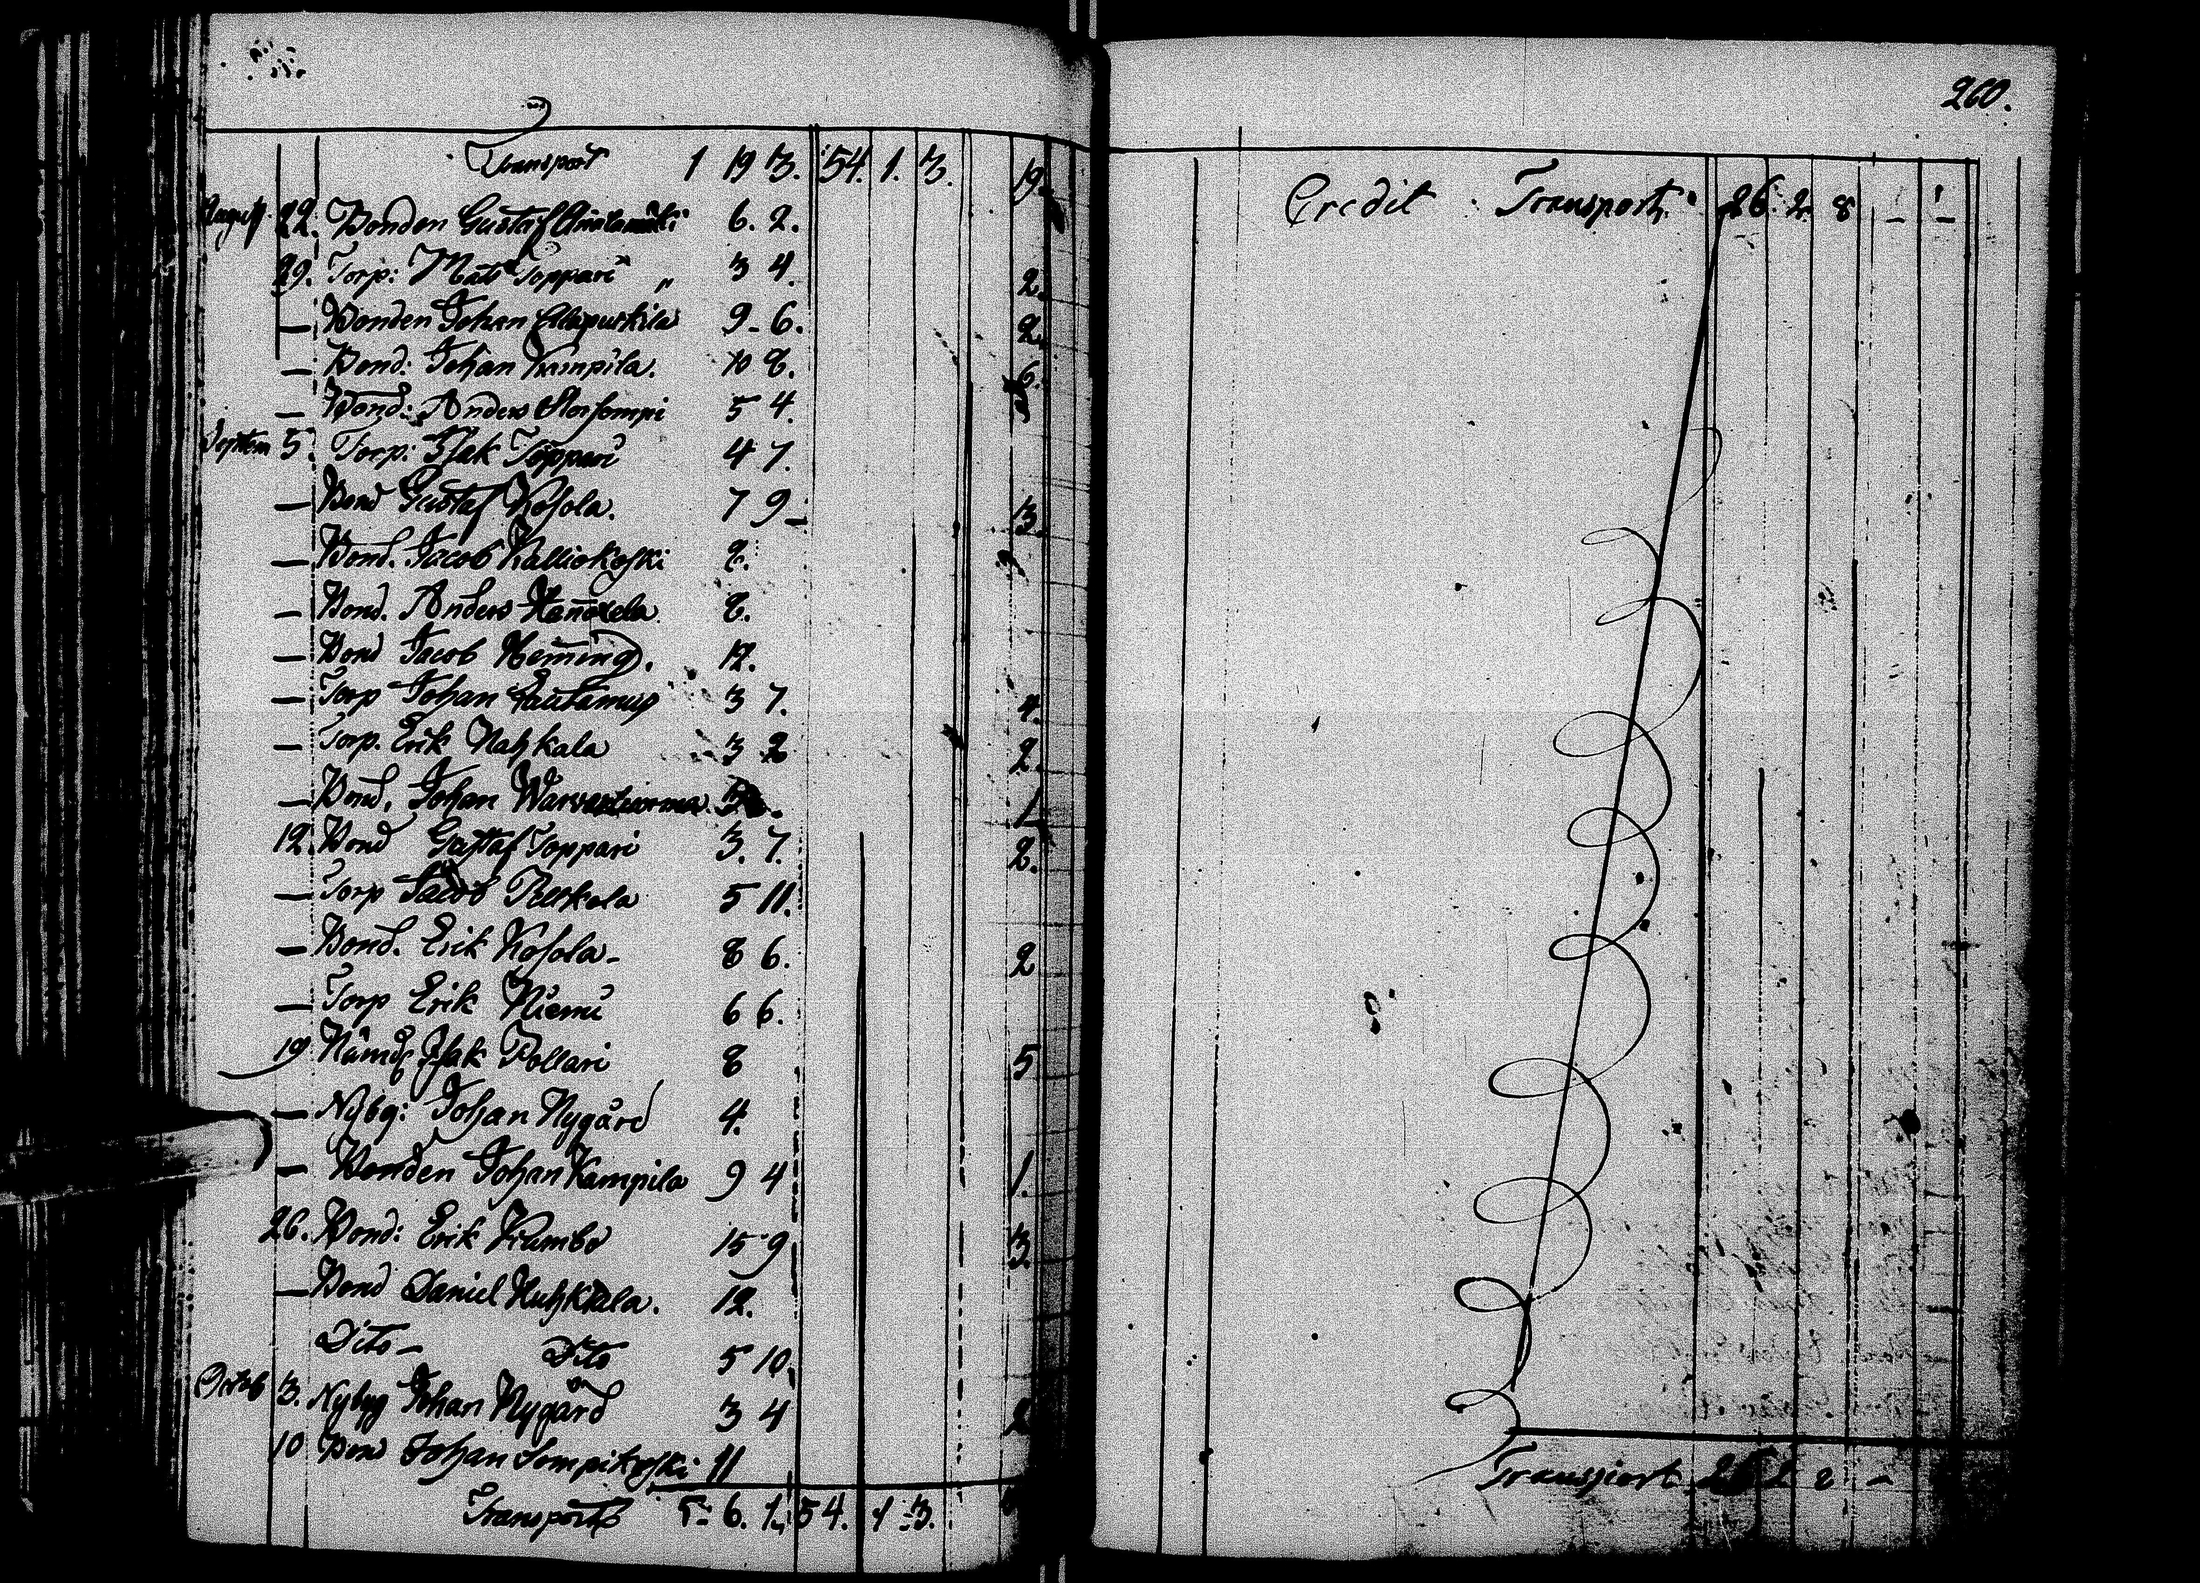 Transport 1 19 3. 54. 1. 3. 19.
August 22. Bonden Gustaf 6. 2.
29. Torp: Matts Toppari " 3 4. 2.
— Bonden Johan Allapurkila 9- 6. 2.
— Bond: Johan Kampila. 10 8. 6.
— Bond: Anders Storsompi 5 4.
Septem 5. Torp: Isak Toppari 4 7.
— Bond Gustaf Kosola. 7 9_ 3.
— Bond. Jacob Kalliokoski 8.
— Bond. Anders 8.
— Bond Jacob Heming. 12.
— Torp Johan Rautamus 3 7. 4.
— Torp. Erik Nahkala 3 2 2.
— Bond. Johan 1
12. Bond Gustaf Toppari 3. 7. 2.
— Torp Jacob 5 11.
— Bond. Erik Kosola- 8 6. 2
— Torp Erik Niemi 6 6.
19 Nämd: Isak Pollari 8 5
— Nybg: Johan Nygård 4.
— Bonden Johan Kampila 9 4 1.
26. Bond: Erik Krambo 15 9 3.
— Bond Daniel Huhkkala. 12.
Dito — Dito 5 10.
Octob 3. Nybyg Johan Nygård 3 4 2
10 Bond Johan Sompikoski 11
Transport 5- 6. 1. 54. 1 - 3.
260.
Credit Transport. 26. 2. 8 _ _
Transport 26 2 8 -